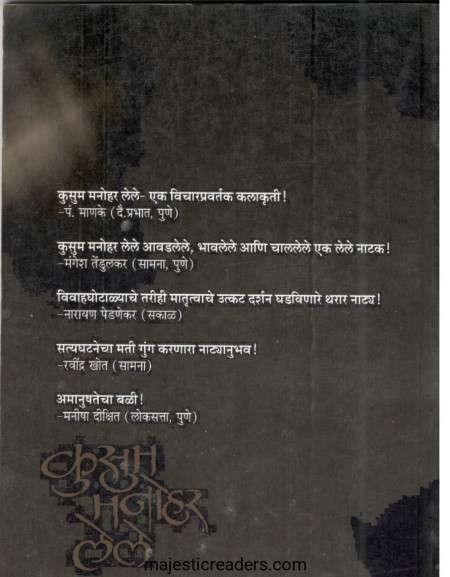 कुसुम मनोहर लेले- एक विचारप्रवर्तक कलाकृती!
-पं. माणके (दै.प्रभात, पुणे)
कुसुम मनोहर लेले आवडलेले, भावलेले आणि चाललेले एक लेले नाटक!
-मंगेश तेंडुलकर (सामना, पुणे)
विवाहघोटाळ्याचे तरीही मातृत्वाचे उत्कट दर्शन घडविणारे थरार नाट्य!
-नारायण पेडणेकर (सकाळ)
सत्यघटनेचा मती गुंग करणारा नाट्यानुभव!
-रवींद्र खोत (सामना)
अमानुषतेचा बळी!
-मनीषा दीक्षित (लोकसत्ता, पुणे)
कुसुम
मनोहर
लेले
majesticreaders.com